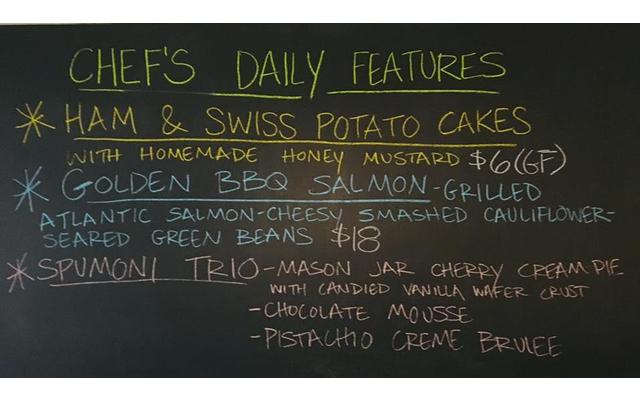 CHEF'S DAILY FEATURES
* HAM & SWISS POTATO CAKES
WITH HOMEMADE HONEY MUSTARD $6 (GF)
* GOLDEN BBQ SALMON-GRILLED
ATLANTIC SALMON-CHEESY SMASHED CAULIFLOWER-
SEARED GREEN BEANS $18
* SPUMONI TRIO-MASON JAR CHERRY CREAM PIE
WITH CANDIED VANILLA WAFER CRUST
-CHOCOLATE MOUSSE
-PISTACHIO CREME BRULEE